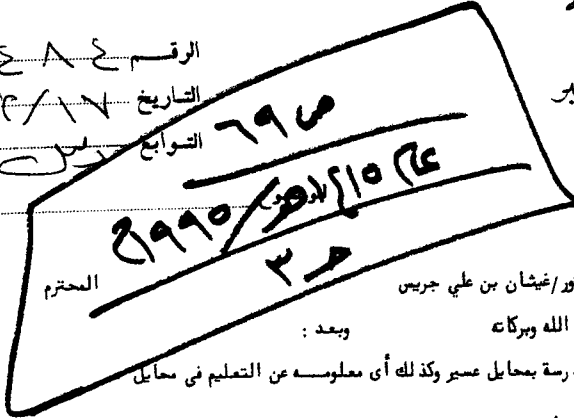 الرقم ٤٨٤
التاريخ ١٧/
التوابع
ص ٦٩
عام ١٤١٥هـ/١٩٩٥م
حـ ٣
ور/غيثان بن علي جريس
المحترم
الله وبركاته وبعد :
رسة بمحايل عسير وكذلك أى معلومـــه عن التعليم فى محايل